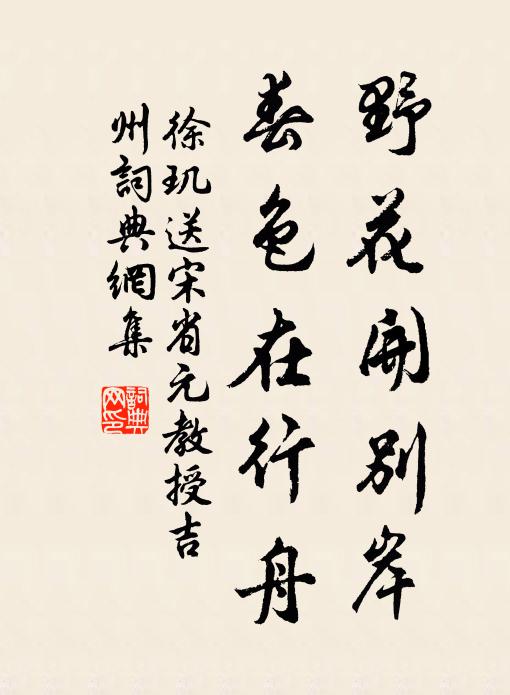 野花開別岸
春色在行舟
徐玑送宋省元教授吉
州詞典網集
詞典
网印